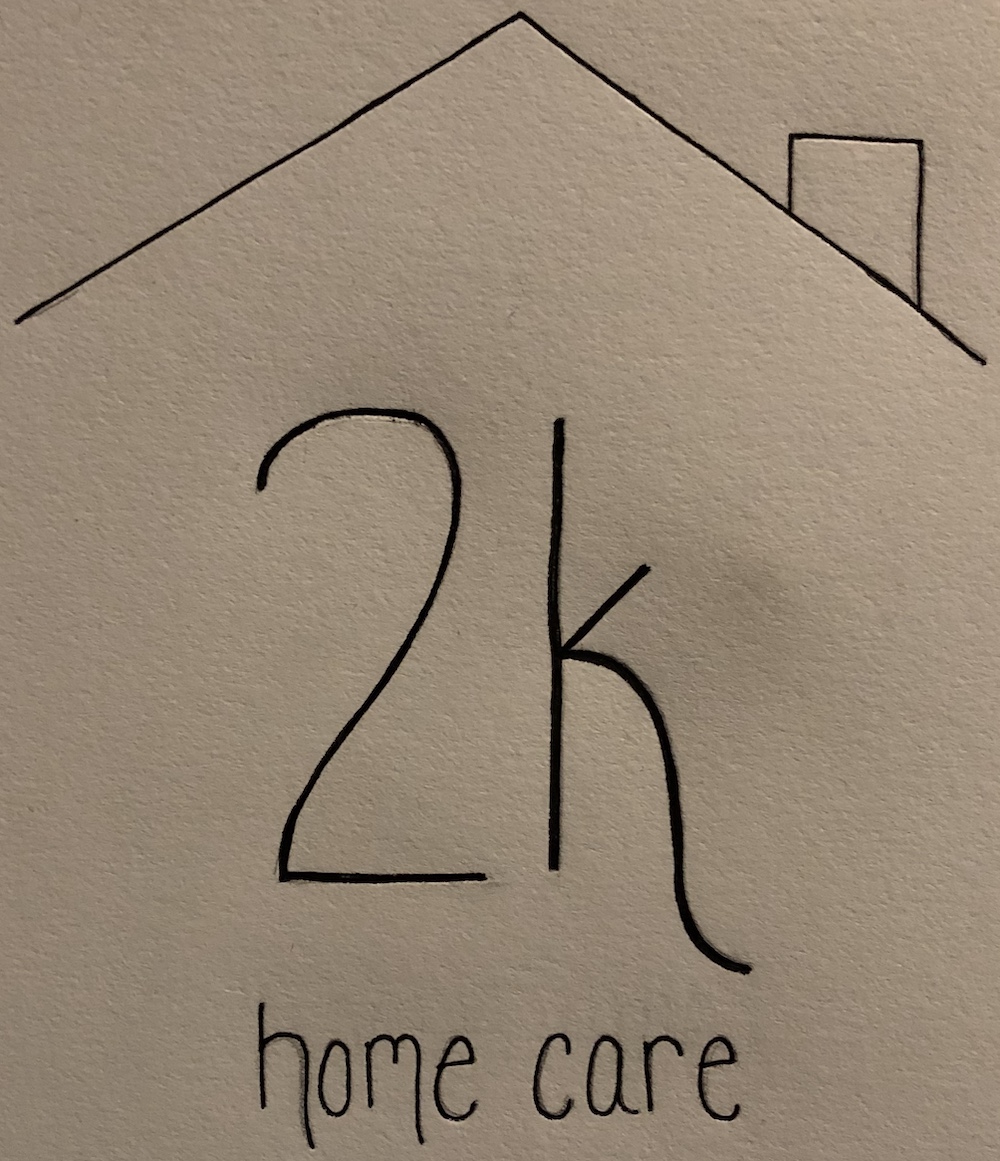 2k
home care